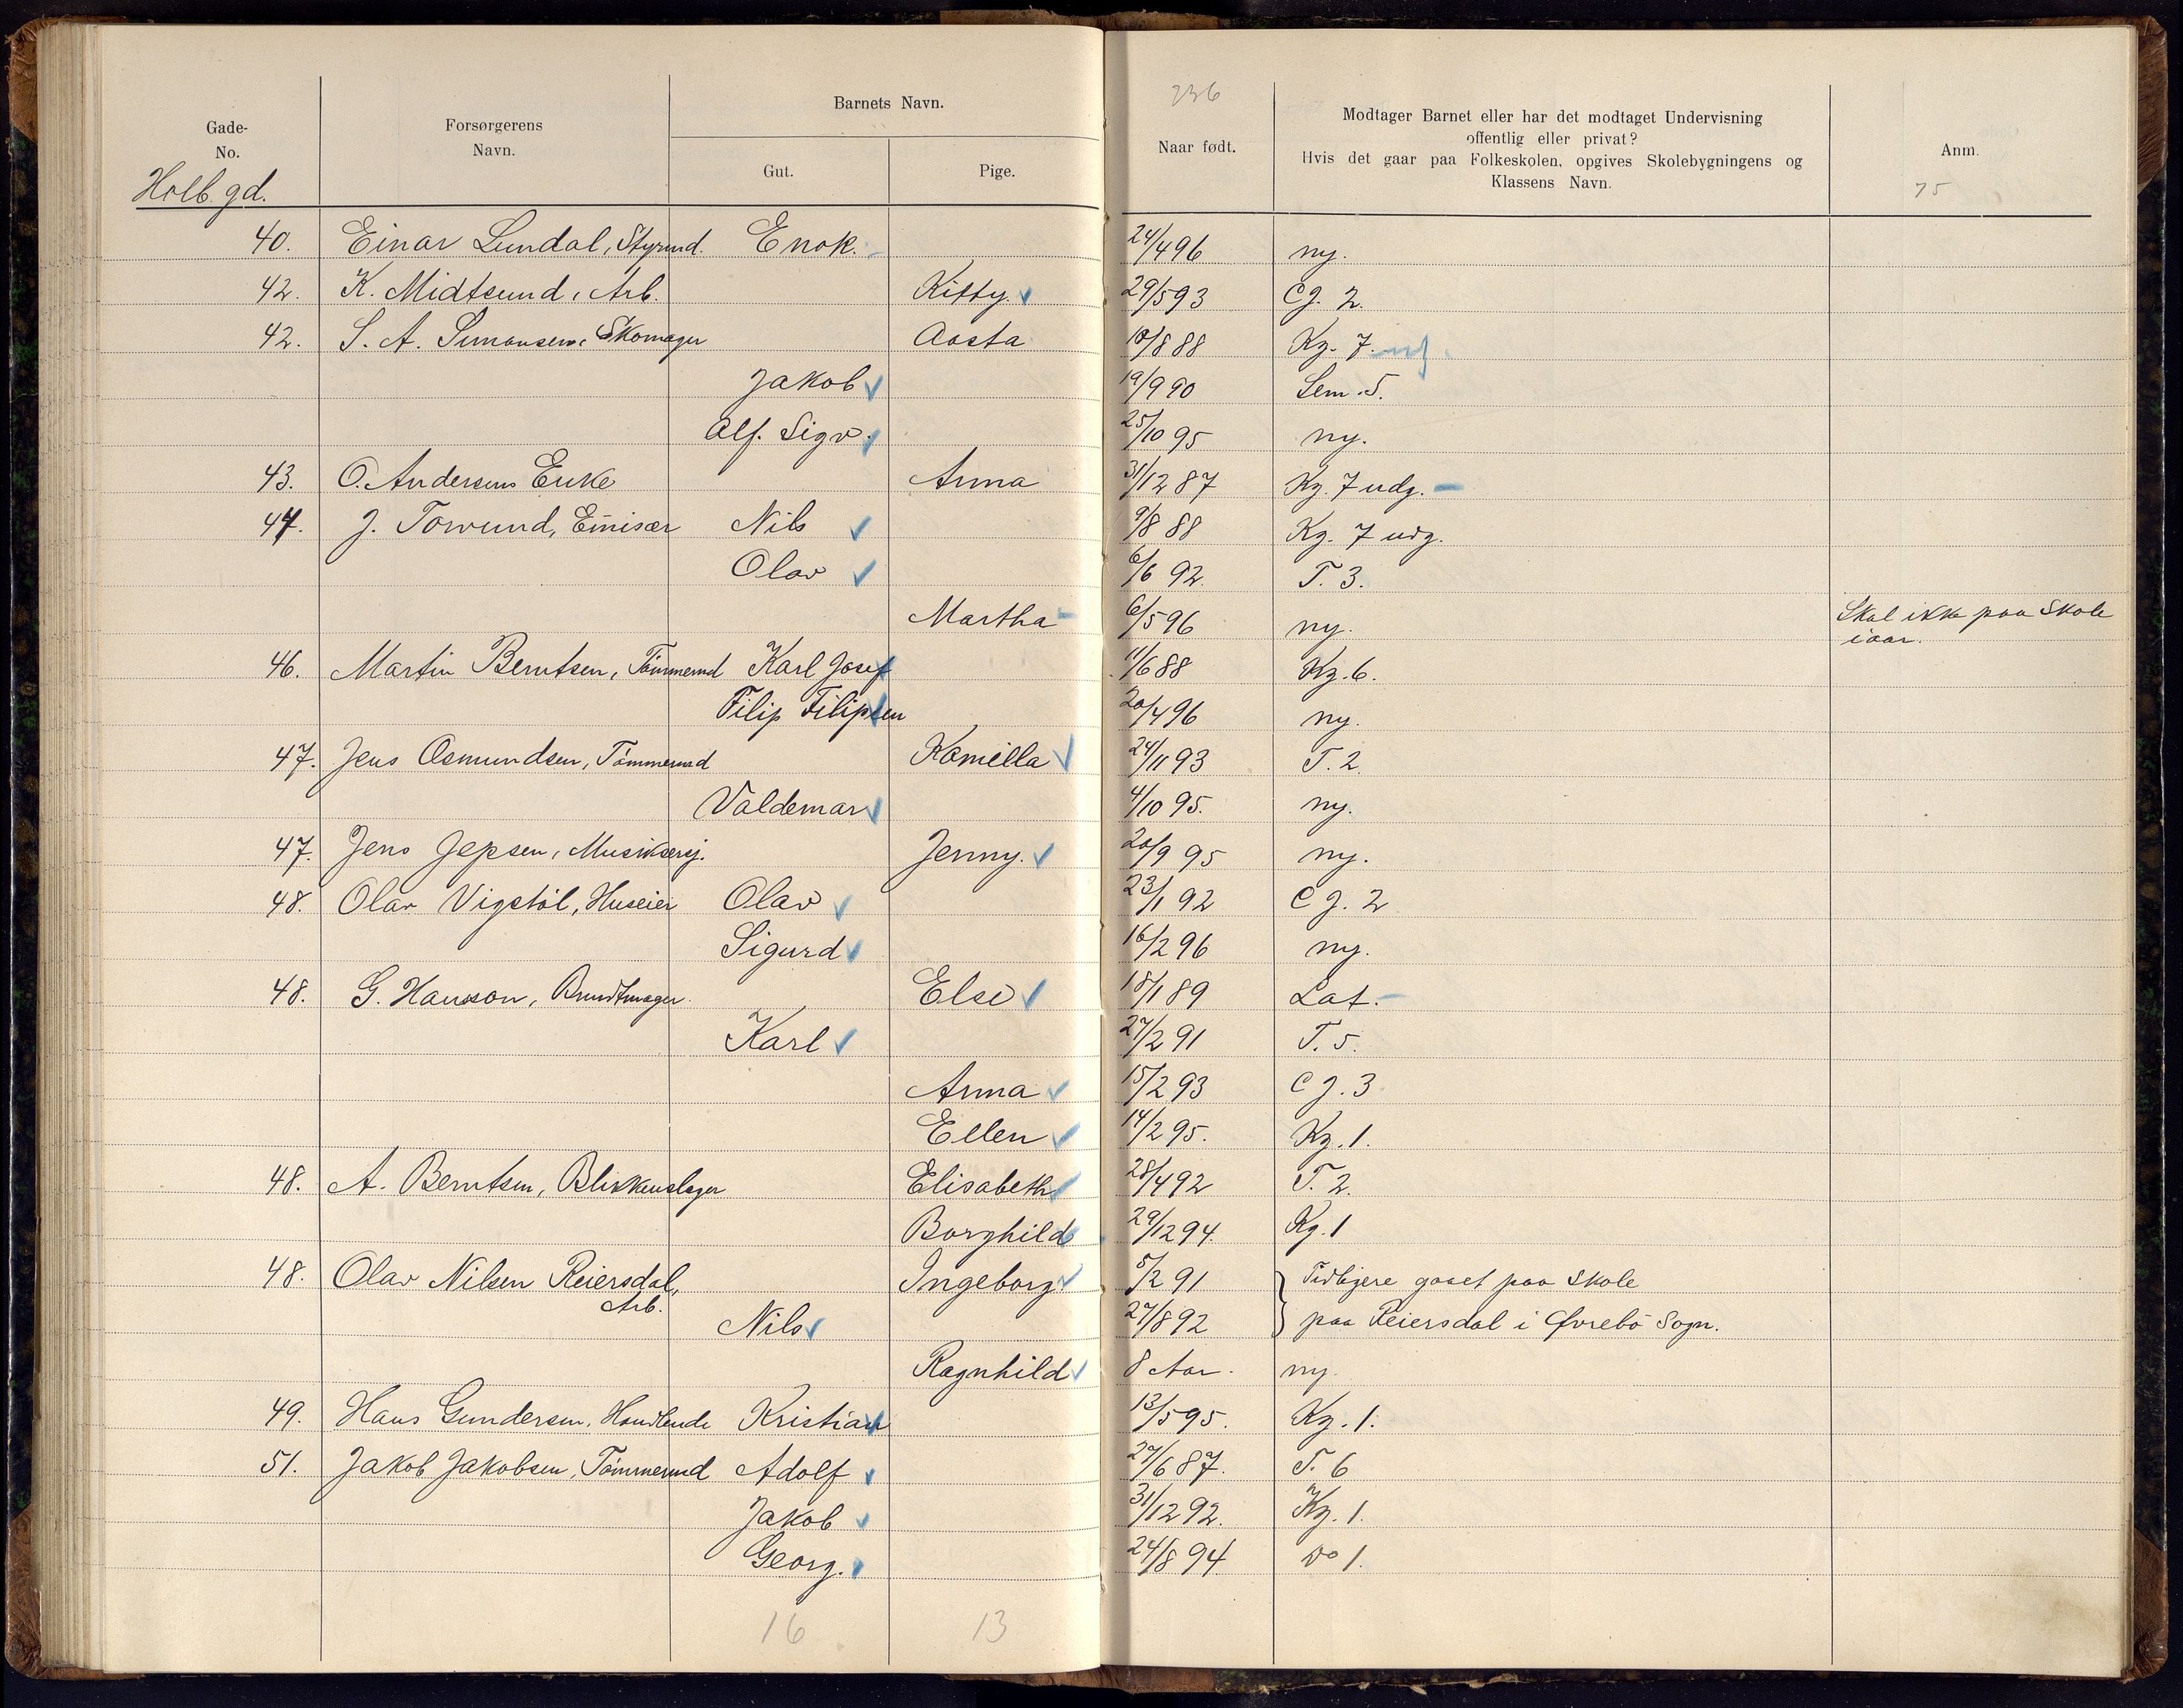 236
Gade-
No.
Forsørgerens
Navn.
Barnets Navn.
Gut.
Pige.
Naar født.
Modtager Barnet eller har det modtaget Undervisning
offentlig eller privat?
Hvis det gaar paa Folkeskolen, opgives Skolebygningens og
Klassens Navn.
Anm.
75
Holb. gd.
40. Einar Lundal, Styrmd. Enok. 24/4 96 ny.
42. K. Midtsund, Arb. Kitty. 29/5 93 Cg. 2.
42. S. A. Simonsen, Skomager Aasta 10/8 88 Kg. 7.
Jakob 19/9 90 Sem. 5.
Alf. Sigv. 25/10 95 ny.
43. O. Andersens Enke Anna 31/12 87 Kg. 7 udg.
44. J. Torvund, Emisær Nils 9/8 88 Kg. 7 udg.
Olav 6/6 92 T. 3.
Martha 6/5 96 ny. Skal ikke paa Skole
iaar.
46. Martin Berntsen, Tömmermd Karl Josef 11/6 88 Kg. 6.
Filip Filipsen 20/4 96 ny.
47. Jens Osmundsen, Tömmermd Kamilla 24/11 93 T. 2.
Valdemar 4/10 95. ny.
47. Jens Jepsen, Musiksersj. Jenny. 20/9 95 ny.
48. Olav Vigstöl, Huseier Olav 23/1 92 Cg. 2
Sigurd 16/2 96 ny.
48. G. Hansson, Bundtmager Else 18/1 89 Lat.
Karl 27/2 91 T. 5.
Anna 15/2 93 Cg. 3
Ellen 14/2 95. Kg. 1.
48. A. Berntsen, Blikkenslager Elisabeth 28/4 92 T. 2.
Borghild 29/12 94 Kg. 1
48. Olav Nilsen Reiersdal, Ingeborg 5/2 91 Tidligere gaaet paa Skole
Arb.
Nils 27/8 92 paa Reiersdal i Øvrebö Sogn.
Ragnhild 8 Aar. ny.
49. Hans Gundersen, Handlende Kristian 13/5 95. Kg. 1.
51. Jakob Jakobsen, Tömmermd Adolf 27/6 87. T. 6
Jakob 31/12 92. Kg. 1.
Georg. 24/8 94 do 1.
16 13